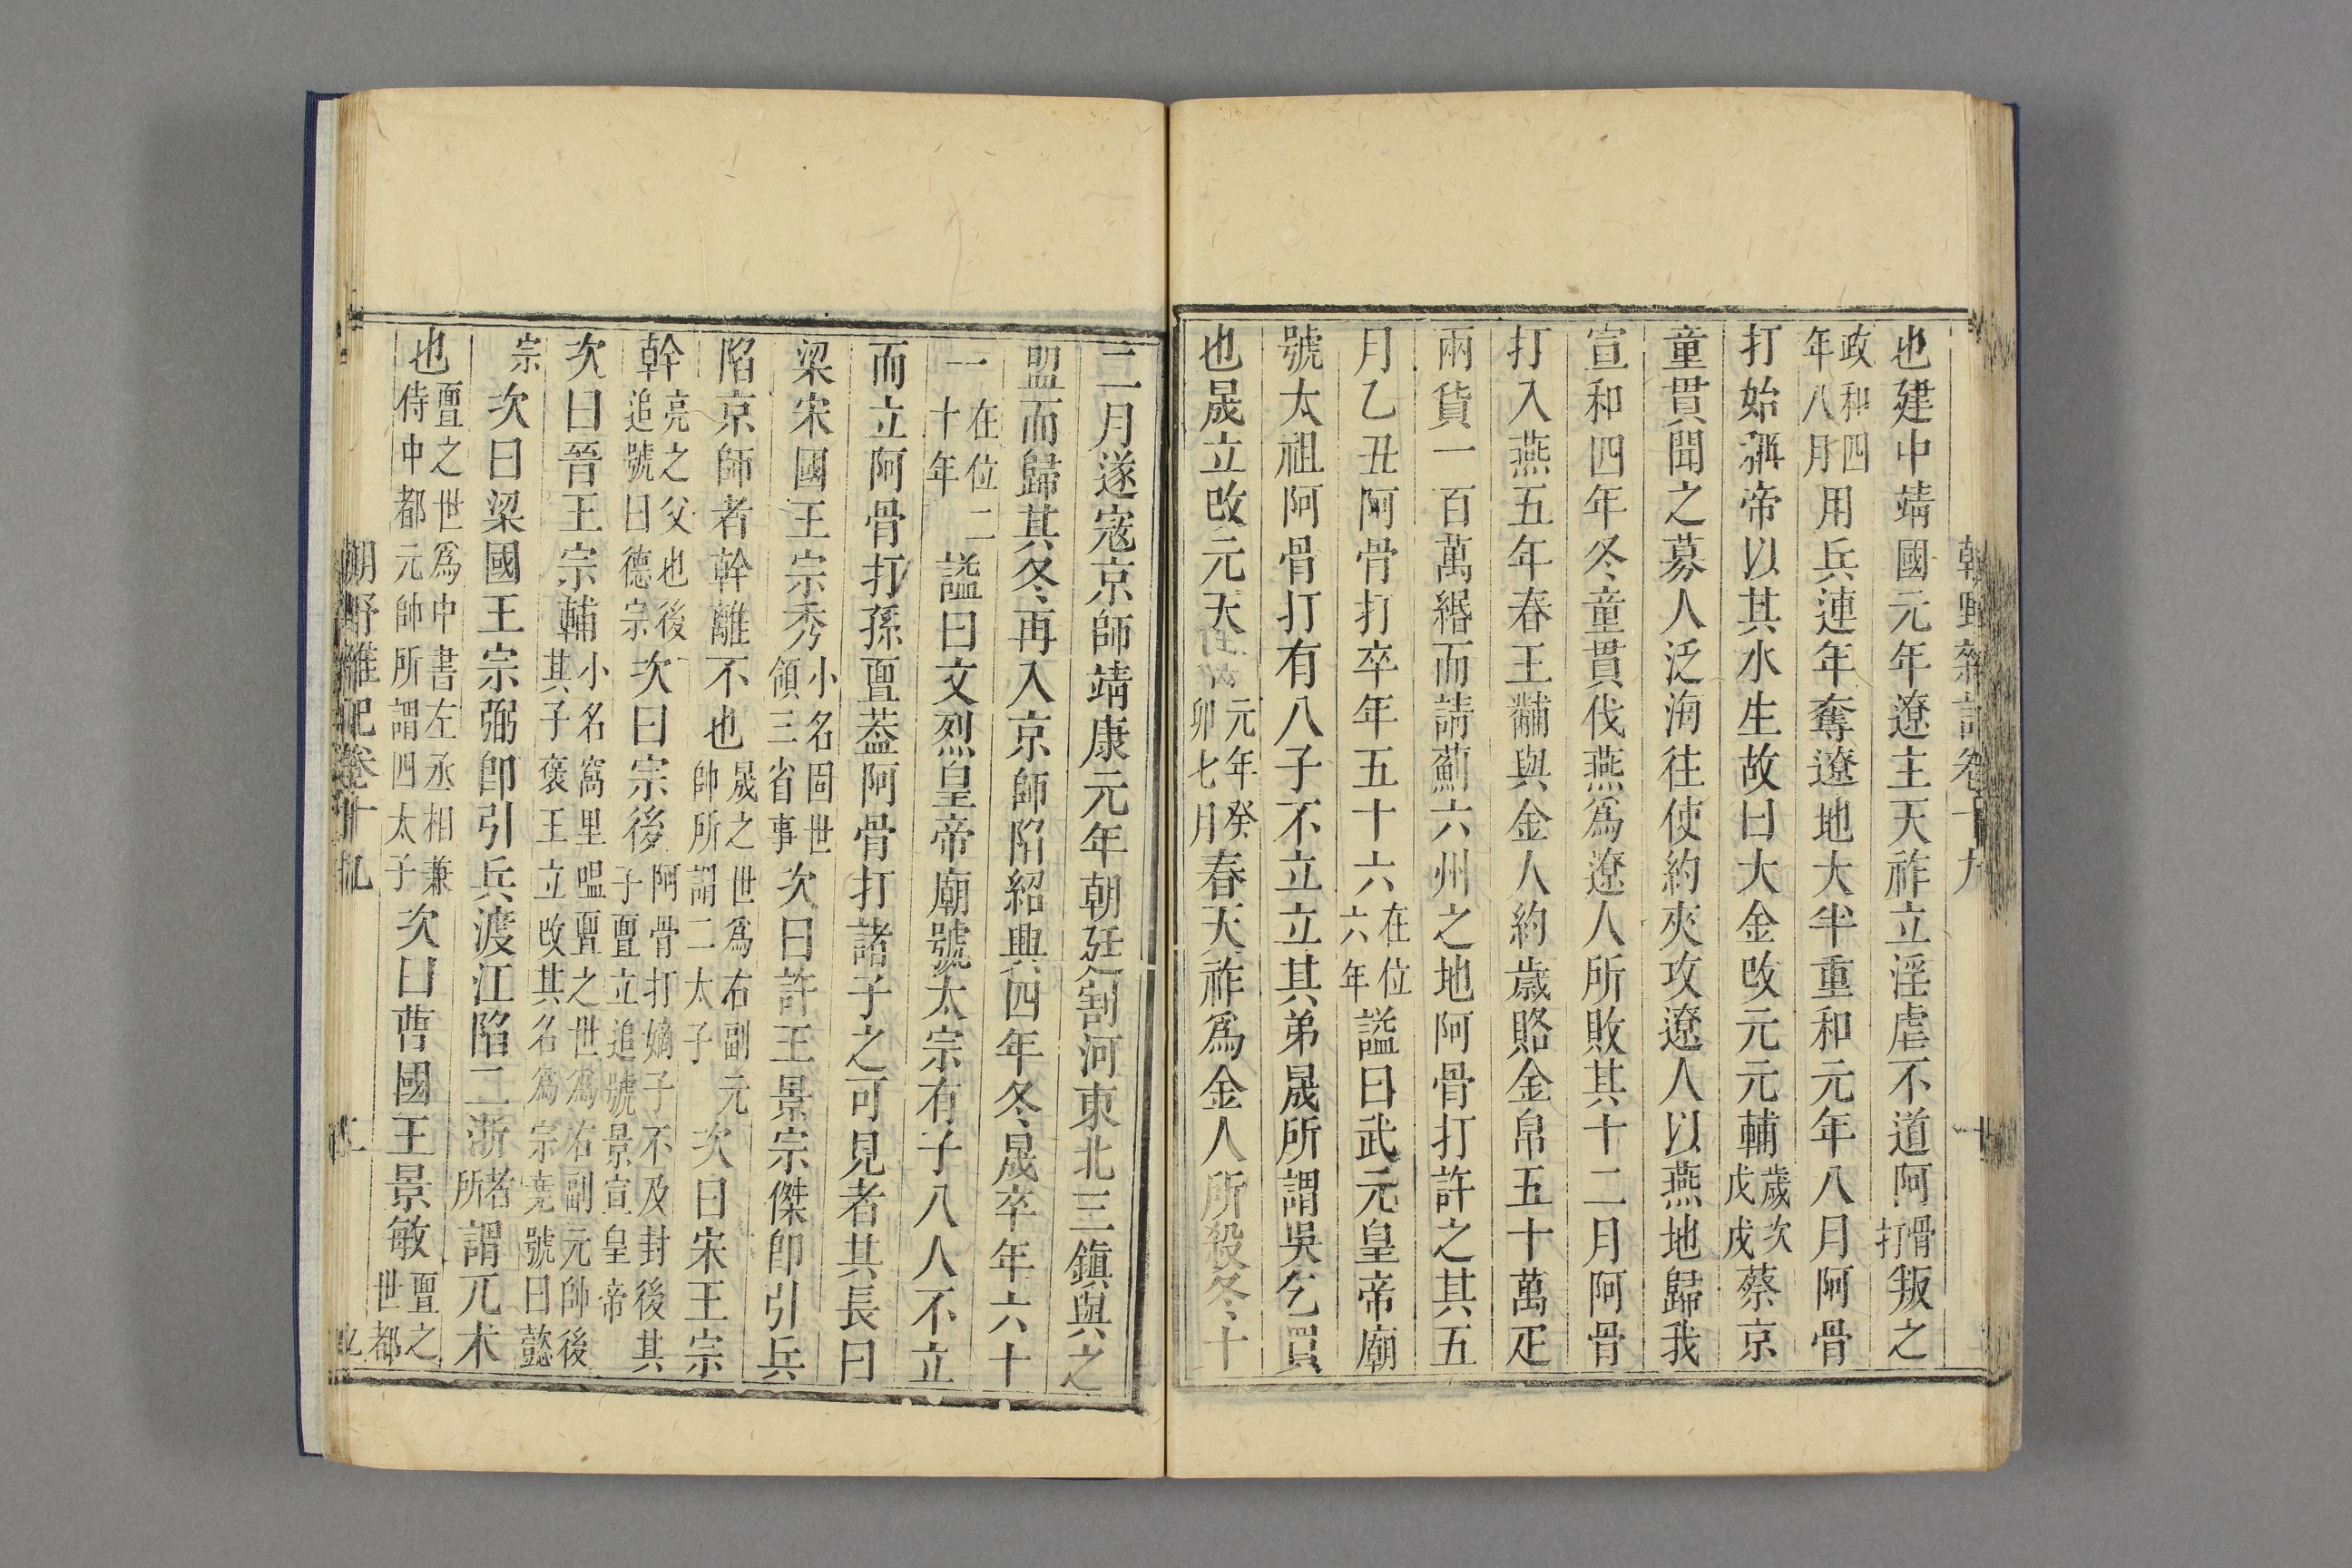 朝野雜記卷十九 十
也建中靖國元年遼主天祚立淫虐不道阿骨打叛之
政和四年八月用兵連年奪遼地大半重和元年八月阿骨
打始稱帝以其水生故曰大金改元元輔歲次戊戌蔡京
童貫聞之募人泛海往使約夾攻遼人以燕地歸我
宣和四年冬童貫伐燕爲遼人所敗其十二月阿骨
打入燕五年春王黼與金人約歲賂金帛五十萬疋
兩貨一百萬緡而請薊六州之地阿骨打許之其五
月乙丑阿骨打卒年五十六在位六年謚曰武元皇帝廟
號太祖阿骨打有八子不立立其弟晟所謂吳乞買
也晟立改元天元年癸卯七月春天祚爲金人所殺冬十
二月遂寇京師靖康元年朝廷割河東北三鎭與之
盟而歸其冬再入京師陷紹興四年冬晟卒年六十
一在位二十年謚曰文烈皇帝廟號太宗有子八人不立
而立阿骨打孫亶葢阿骨打諸子之可見者其長曰
梁宋國王宗秀小名固世領三省事次曰許王景宗傑卽引兵
陷京師者幹離不也晟之世爲右副元帥所謂二太子次曰宋王宗
幹亮之父也後追號曰德宗次曰宗後阿骨打嫡子不及封後其子亶立追號景宣皇帝
次曰晉王宗輔小名窩里嗢亶之世爲右副元帥後其子褒王立改其名爲宗堯號曰懿
宗次曰梁國王宗弼卽引兵渡江陷二浙者所謂兀朮
也亶之世爲中書左丞相兼侍中都元帥所謂四太子次曰曹國王景敏亶之世都
朝野雜記卷十九